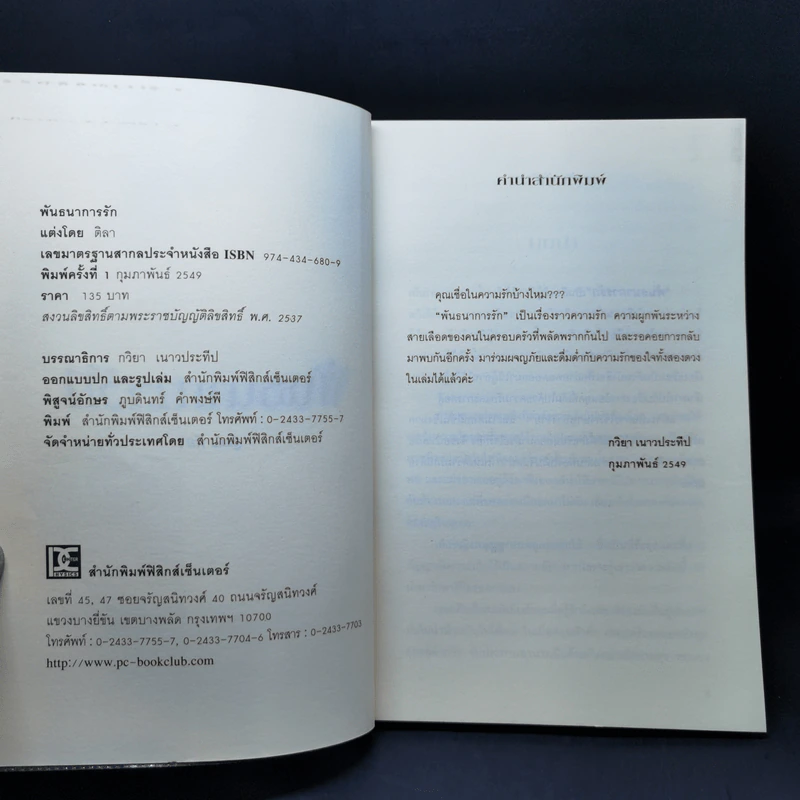 พันธนาการรัก
แต่งโดย ติลา
เลขมาตรฐานสากลประจำหนังสือ ISBN 974-434-680-9
พิมพ์ครั้งที่ 1 กุมภาพันธ์ 2549
ราคา 135 บาท
สงวนลิขสิทธิ์ตามพระราชบัญญัติลิขสิทธิ์ พ.ศ. 2537
บรรณาธิการ กวิยา เนาวประทีป
ออกแบบปก และรูปเล่ม สำนักพิมพ์ฟิสิกส์เซ็นเตอร์
พิสูจน์อักษร ภูบดินทร์ คำพงษ์พี
พิมพ์ สำนักพิมพ์ฟิสิกส์เซ็นเตอร์ โทรศัพท์ : 0-2433-7755-7
จัดจำหน่ายทั่วประเทศโดย สำนักพิมพ์ฟิสิกส์เซ็นเตอร์
สำนักพิมพ์ฟิสิกส์เซ็นเตอร์
เลขที่ 45, 47 ซอยจรัญสนิทวงศ์ 40 ถนนจรัญสนิทวงศ์
แขวงบางยี่ขัน เขตบางพลัด กรุงเทพฯ 10700
โทรศัพท์ : 0-2433-7755-7, 0-2433-7704-6 โทรสาร : 0-2433-7703
http://www.pc-bookclub.com
คำนำสำนักพิมพ์
คุณเชื่อในความรักบ้างไหม???
"พันธนาการรัก" เป็นเรื่องราวความรัก ความผูกพันระหว่าง
สายเลือดของคนในครอบครัวที่พลัดพรากกันไป และรอคอยการกลับ
มาพบกันอีกครั้ง มาร่วมผจญภัยและดื่มด่ำกับความรักของใจทั้งสองดวง
ในเล่มได้แล้วค่ะ
กวิยา เนาวประทีป
กุมภาพันธ์ 2549